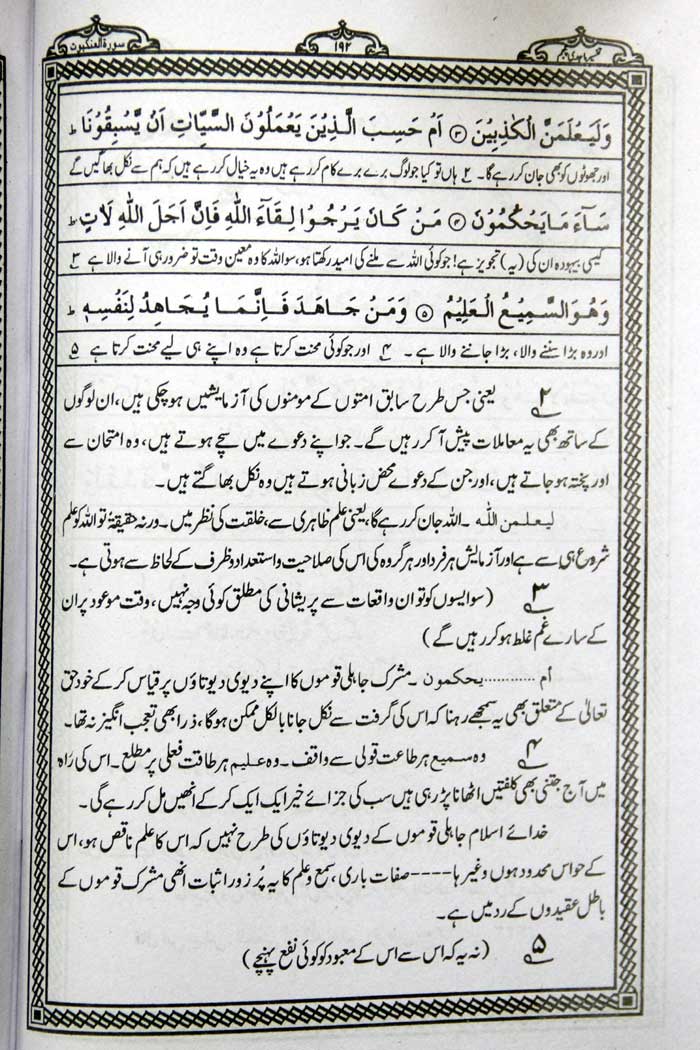 تفسیر ماجدی پنجم
۱۹۲
سورۃ العنکبوت
وَلَیَعْلَمَنَّ الْکٰذِبِیْنَ ۝۳ اَمْ حَسِبَ الَّذِیْنَ یَعْمَلُوْنَ السَّیِّاٰتِ اَنْ یَّسْبِقُوْنَا ؕ
اور جھوٹوں کو بھی جان کر رہے گا۔ ۲ ہاں تو کیا جو لوگ برے برے کام کر رہے ہیں وہ یہ خیال کر رہے ہیں کہ ہم سے نکل بھاگیں گے
سَآءَ مَا یَحْکُمُوْنَ ۝۴ مَنْ کَانَ یَرْجُوْا لِقَآءَ اللّٰہِ فَاِنَّ اَجَلَ اللّٰہِ لَاٰتٍ ؕ
کیسی بیہودہ ان کی (یہ) تجویز ہے! جو کوئی اللہ سے ملنے کی امید رکھتا ہو، سو اللہ کا وہ معین وقت تو ضرور ہی آنے والا ہے ۳
وَھُوَ السَّمِیْعُ الْعَلِیْمُ ۝۵ وَمَنْ جَاھَدَ فَاِنَّمَا یُجَاھِدُ لِنَفْسِہٖ ؕ
اور وہ بڑا سننے والا، بڑا جاننے والا ہے۔ ۴ اور جو کوئی محنت کرتا ہے وہ اپنے ہی لیے محنت کرتا ہے ۵
۲ یعنی جس طرح سابق امتوں کے مومنوں کی آزمایشیں ہوچکی ہیں، ان لوگوں
کے ساتھ بھی یہ معاملات پیش آکر رہیں گے۔ جو اپنے دعوے میں سچے ہوتے ہیں، وہ امتحان سے
اور پختہ ہوجاتے ہیں، اور جن کے دعوے محض زبانی ہوتے ہیں وہ نکل بھاگتے ہیں۔
لیعلمن اللہ ۔ اللہ جان کر رہے گا، یعنی علم ظاہری سے، خلقت کی نظر میں۔ ورنہ حقیقۃً تو اللہ کو علم
شروع ہی سے ہے اور آزمایش ہر فرد اور ہر گروہ کی اس کی صلاحیت و استعداد و ظرف کے لحاظ سے ہوتی ہے۔
۳ (سو ایسوں کو تو ان واقعات سے پریشانی کی مطلق کوئی وجہ نہیں، وقت موعود پر ان
کے سارے غم غلط ہو کر رہیں گے)
أم ............ یحکمون ۔ مشرک جاہلی قوموں کا اپنے دیوی دیوتاؤں پر قیاس کرکے خود حق
تعالیٰ کے متعلق بھی یہ سمجھے رہنا کہ اس کی گرفت سے نکل جانا بالکل ممکن ہوگا، ذرا بھی تعجب انگیز نہ تھا۔
۴ وہ سمیع ہر طاعت قولی سے واقف۔ وہ علیم ہر طاقت فعلی پر مطلع۔ اس کی راہ
میں آج جتنی بھی کلفتیں اٹھانا پڑ رہی ہیں سب کی جزائے خیر ایک ایک کرکے انھیں مل کر رہے گی۔
خدائے اسلام جاہلی قوموں کے دیوی دیوتاؤں کی طرح نہیں کہ اس کا علم ناقص ہو، اس
کے حواس محدود ہوں وغیرہا----صفات باری، سمع و علم کا یہ پُر زور اثبات انھی مشرک قوموں کے
باطل عقیدوں کے رد میں ہے۔
۵ (نہ یہ کہ اس سے اس کے معبود کو کوئی نفع پہنچے)